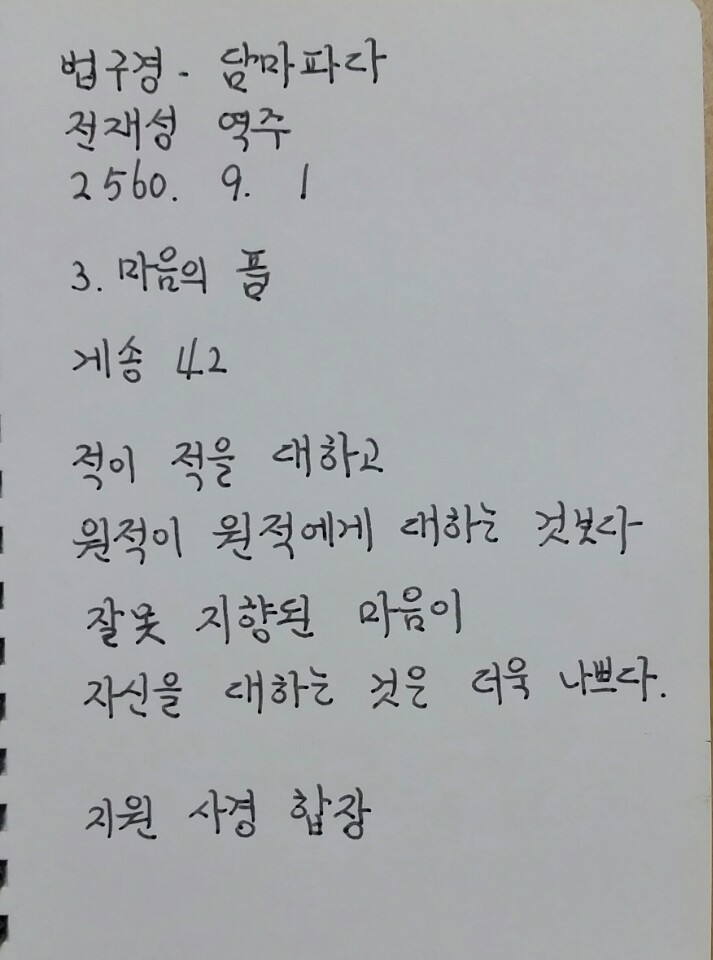 법구경 - 담마파다
전재성 역주
2560. 9. 1
3. 마음의 품
게송 42
적이 적을 대하고
원적이 원적에게 대하는 것보다
잘못 지향된 마음이
자신을 대하는 것은 더욱 나쁘다.
지원 사경 합장